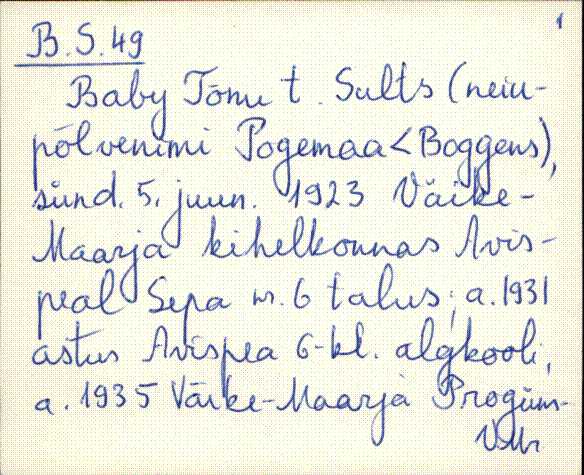 1
B.S.49
Baby Tõnu t. Sults (neiu-
põlvenimi Pogemaa < Boggens),
sünd. 5. juun. 1923 Väike-
Maarja kihelkonnas Avis-
peal Sepa nr. 6 talus; a. 1931
astus Avispea 6-kl. algkooli,
a. 1935 Väike-Maarja Progüm-